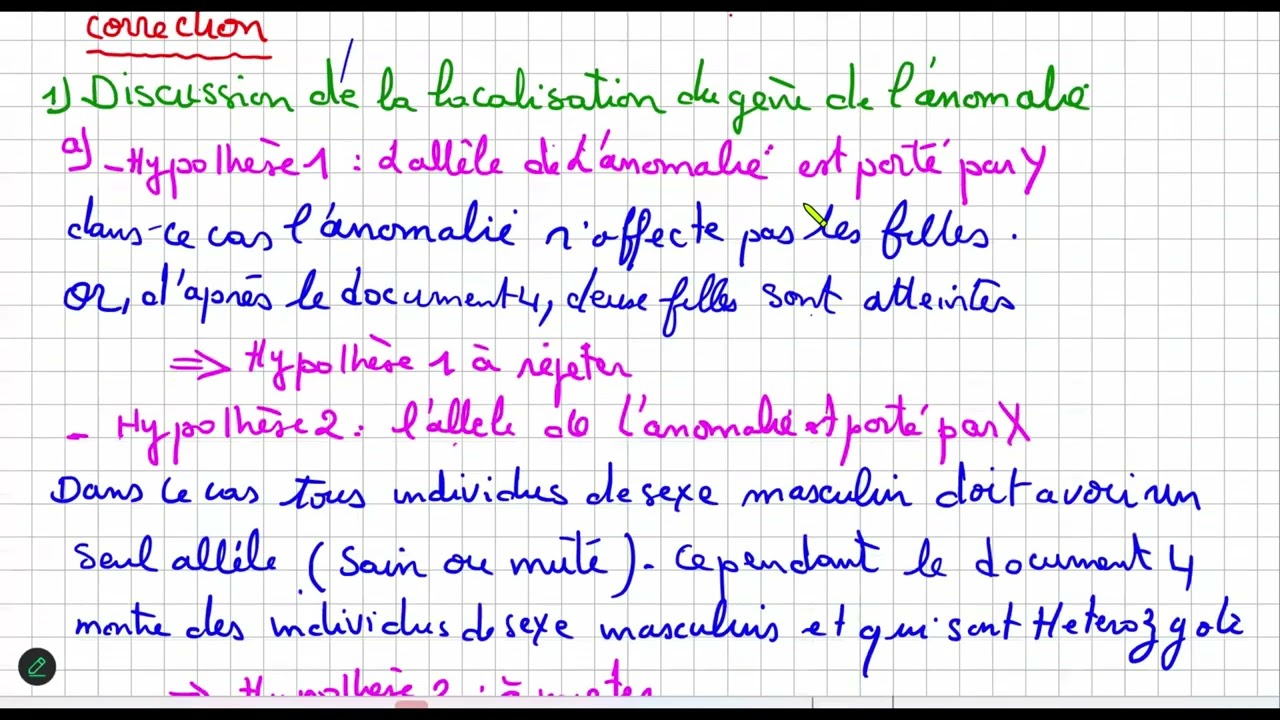 correction
1) Discussion de la localisation du gène de l'anomalie
a) - Hypothèse 1 : l'allèle de l'anomalie est porté par Y
dans ce cas l'anomalie n'affecte pas les filles.
or, d'après le document 4, deux filles sont atteintes
⇒ Hypothèse 1 à rejeter
- Hypothèse 2 : l'allele de l'anomalie est porté par X
Dans ce cas tous individus de sexe masculin doit avoir un
seul allèle (sain ou muté). Cependant le document 4
montre des individus de sexe masculins et qui sont Heterozygote
⇒ Hypothèse 2 : à rejeter